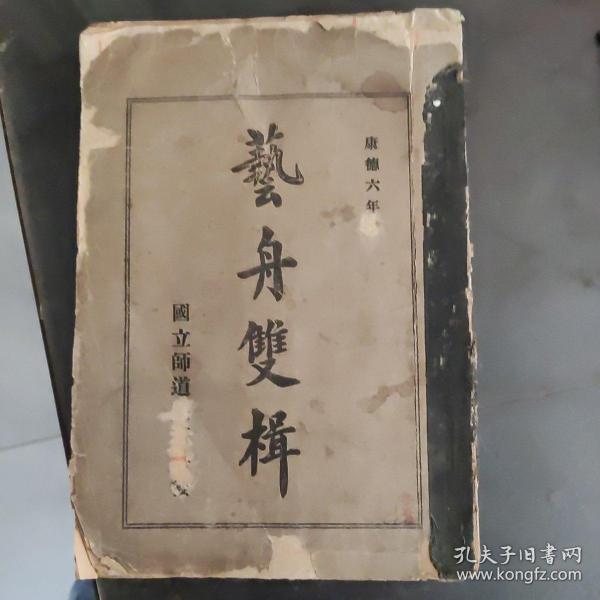 康德六年
藝舟雙楫
國立師道
孔夫子旧書网
www.kongfz.com